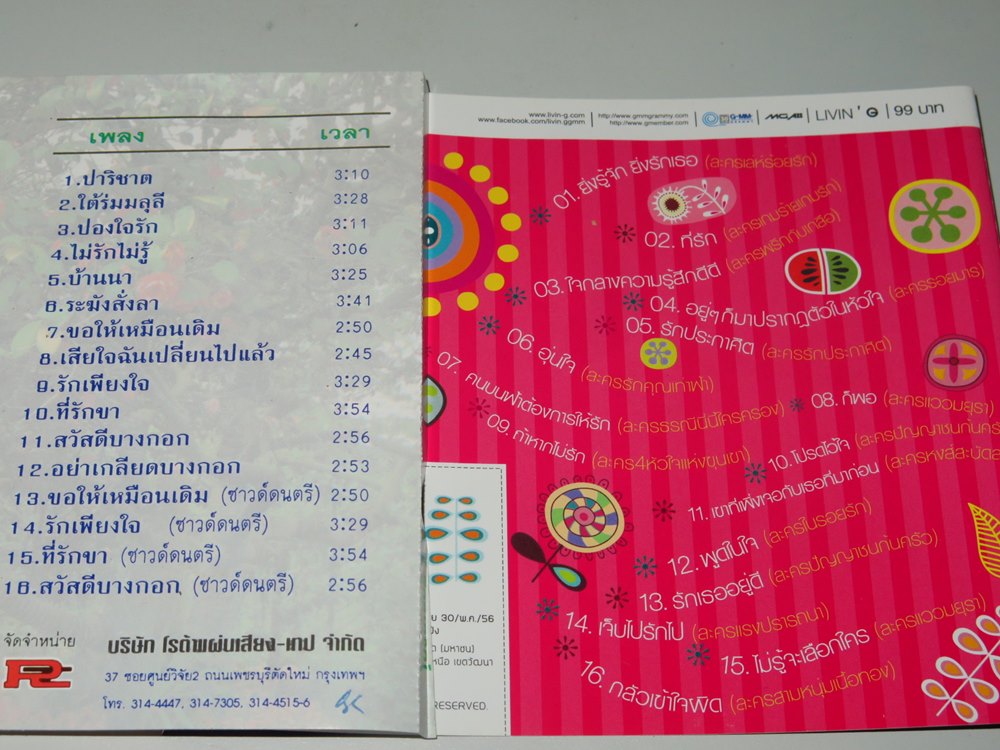 เพลง เวลา
1.ปาริชาต 3:10
2.ใต้ร่มมลุลี 3:28
3.ปองใจรัก 3:11
4.ไม่รักไม่รู้ 3:06
5.บ้านนา 3:25
6.ระฆังสั่งลา 3:41
7.ขอให้เหมือนเดิม 2:50
8.เสียใจฉันเปลี่ยนไปแล้ว 2:45
9.รักเพียงใจ 3:29
10.ที่รักขา 3:54
11.สวัสดีบางกอก 2:56
12.อย่าเกลียดบางกอก 2:53
13.ขอให้เหมือนเดิม (ซาวด์ดนตรี) 2:50
14.รักเพียงใจ (ซาวด์ดนตรี) 3:29
15.ที่รักขา (ซาวด์ดนตรี) 3:54
16.สวัสดีบางกอก (ซาวด์ดนตรี) 2:56
จัดจำหน่าย บริษัท โรต้าแผ่นเสียง-เทป จำกัด
37 ซอยศูนย์วิจัย2 ถนนเพชรบุรีตัดใหม่ กรุงเทพฯ
โทร. 314-4447, 314-7305, 314-4515-6
www.livin-g.com
www.facebook.com/livin.ggmm
http://www.gmmgrammy.com
http://www.gmember.com
G-MM MCAB LIVIN' G 99 บาท
01. ยิ่งรู้จัก ยิ่งรักเธอ (ละครเล่ห์ร้อยรัก)
02. ที่รัก (ละครเกมร้ายเกมรัก)
03. ใจกลางความรู้สึกดีดี (ละครพริกกับเกลือ)
04. อยู่ๆ ก็มาปรากฏตัวในหัวใจ (ละครรอยมาร)
05. รักประกาศิต (ละครรักประกาศิต)
06. อุ่นใจ (ละครรักคุณเท่าฟ้า)
07. คนบนฟ้าต้องการให้รัก (ละครธรณีนี่นี้ใครครอง)
08. ก็พอ (ละครแววมยุรา)
09. ถ้าหากไม่รัก (ละคร4หัวใจแห่งขุนเขา)
10. โปรดไว้ใจ (ละครปัญญาชนก้นครัว)
11. เขาที่เพิ่งเจอกับเธอที่มาก่อน (ละครหงส์สะบัดล
12. พูดในใจ (ละครในรอยรัก)
13. รักเธออยู่ดี (ละครปัญญาชนก้นครัว)
14. เจ็บไปรักไป (ละครแรงปรารถนา)
15. ไม่รู้จะเลือกใคร (ละครแววมยุรา)
16. กลัวเข้าใจผิด (ละครสามหนุ่มเนื้อทอง)
30/พ.ค./56
(มหาชน)
เขตวัฒนา
RESERVED.